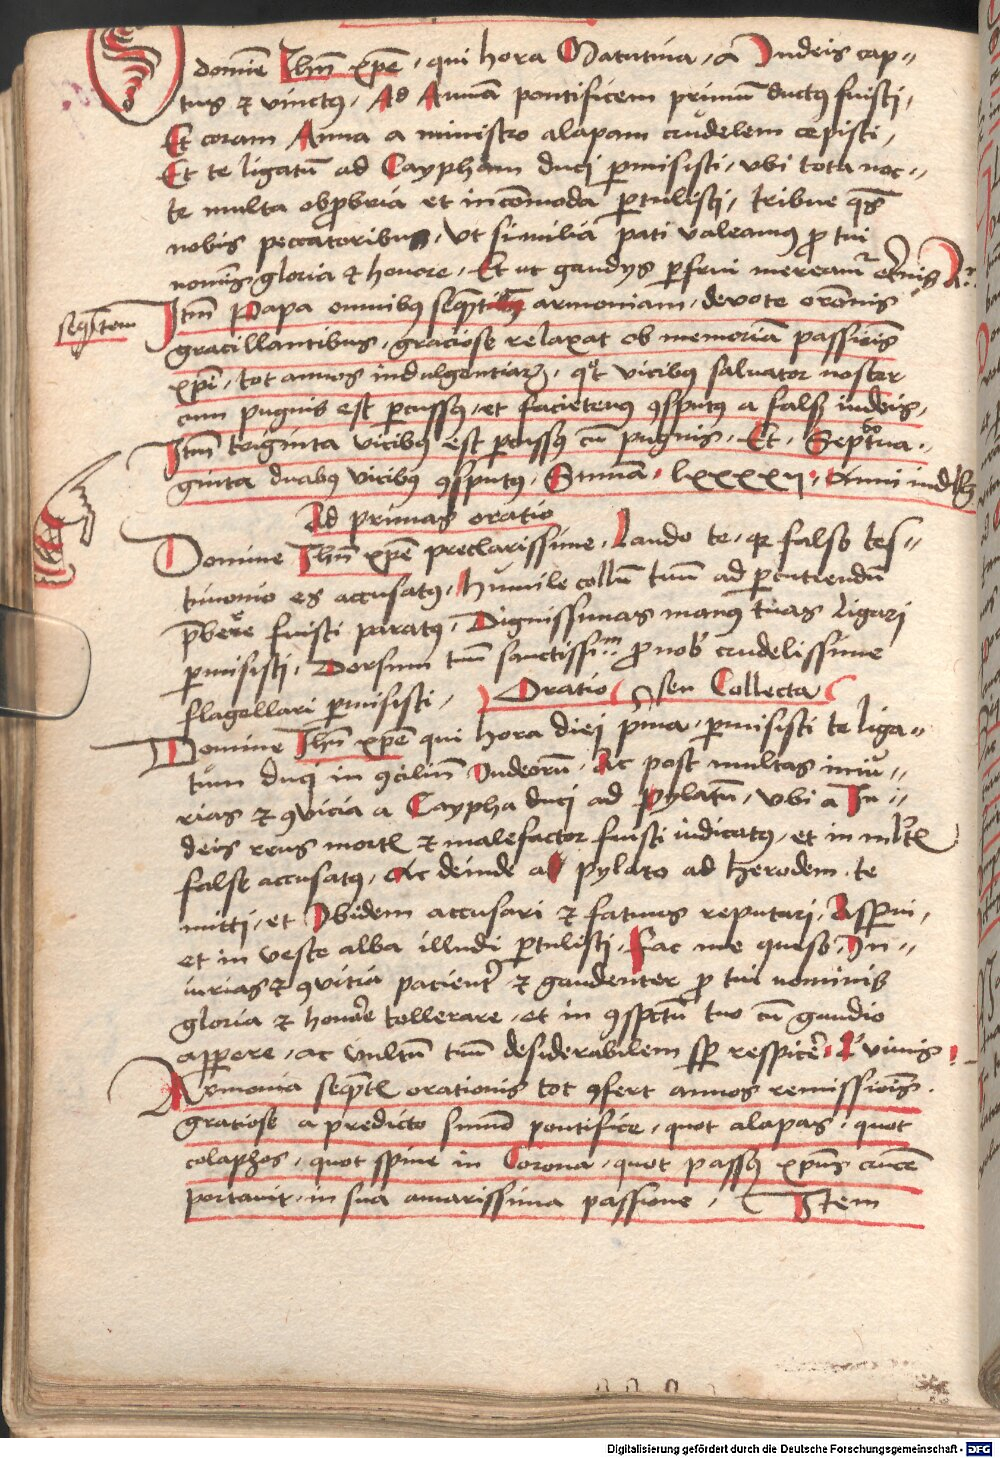 domine Ihũ xp̃e, qui hora Matutina, a Iudeis cap⸗
tus & vinctꝰ, Ad Annã pontificem primũ ductꝰ fuisti,
Et coram Anna a ministro alapam crudelem cepisti,
Et te ligatũ ad Caypham duci ꝑmisisti, vbi tota noc⸗
te multa obꝓbria et incõmoda ꝑtulisti, tribue q̃s
nobis peccatoribus, vt similia pati valeamꝰ ꝓ tui
nomĩs gloria & honore, Et ut gaudys ꝑfrui mereamr̃ et̃nis A?
Itm̃ Papa omnibꝰ armoniam, devote orõnis
seqũtem
gracillantibus, graciose relaxat ob memoriã passiõis
xp̃i, tot annos indulgentiarꝝ, qͦt vicibꝰ saluator noster
cum pugnis est ꝑcussꝰ, et facietenꝰ ꝯsputꝰ a falsis iudeis,
Itm̃ triginta vicibꝰ est ꝑcussꝰ cũ pugnis, Et, Septua⸗
ginta duabus vicibus ꝯsputꝰ, Summã, lxxxxij, Anni
Ad primas oratio
Domine Ihũ xp̃e preclarissime, Laudo te, qꝛ falso tes⸗
timonio es accusatꝰ, humile collũ tuũ ad ꝑcutiendũ
p̃bere fuisti paratꝰ, Dignissimas manꝰ tuas ligari
ꝑmisisti, Dorsum tuũ sanctissimͫ ꝓ nob̾ crudelissime
flagellari ꝑmisisti, Oratio seu Collecta
Domine Ihũ xp̃e qui hora diei p̃ma, ꝑmisisti te liga⸗
tum duci in ꝯciliũ Iudeorũ, Ac post multas iniu⸗
rias & ꝯvicia a Caypha duci ad Pylatũ, vbi a Iu⸗
deis reus mortꝭ & malefactor fuisti iudicatꝰ, et in ml̾tꝭ
false accusatꝰ, Ac deinde a pylato ad Herodem te
mitti, et Ibidem accusari & fatuus reputari, Asperni,
et in veste alba illudi ꝑtulisti, Fac me queso, In⸗
iurias & ꝯvitia patient̾ & gaudenter ꝓ tui nominis
gloria & honore tollerare, et in ꝯspctũ tuo cũ gaudio
apꝑere, ac vultũ tuũ desiderabilem sp̃ respicẽ, Q vivis
Armonia seqũtꝭ orationis tot ꝯfert annos remissiõis
gratiose a predicto sum̃o pontifice, quot alapas, quot
colaphos, quot spine in Corona, quot passꝰ xp̃us crucẽ
portavit, in sua amarissima passione, Item
Digitalisierung gefördert durch die Deutsche Forschungsgemeinschaft - DFG